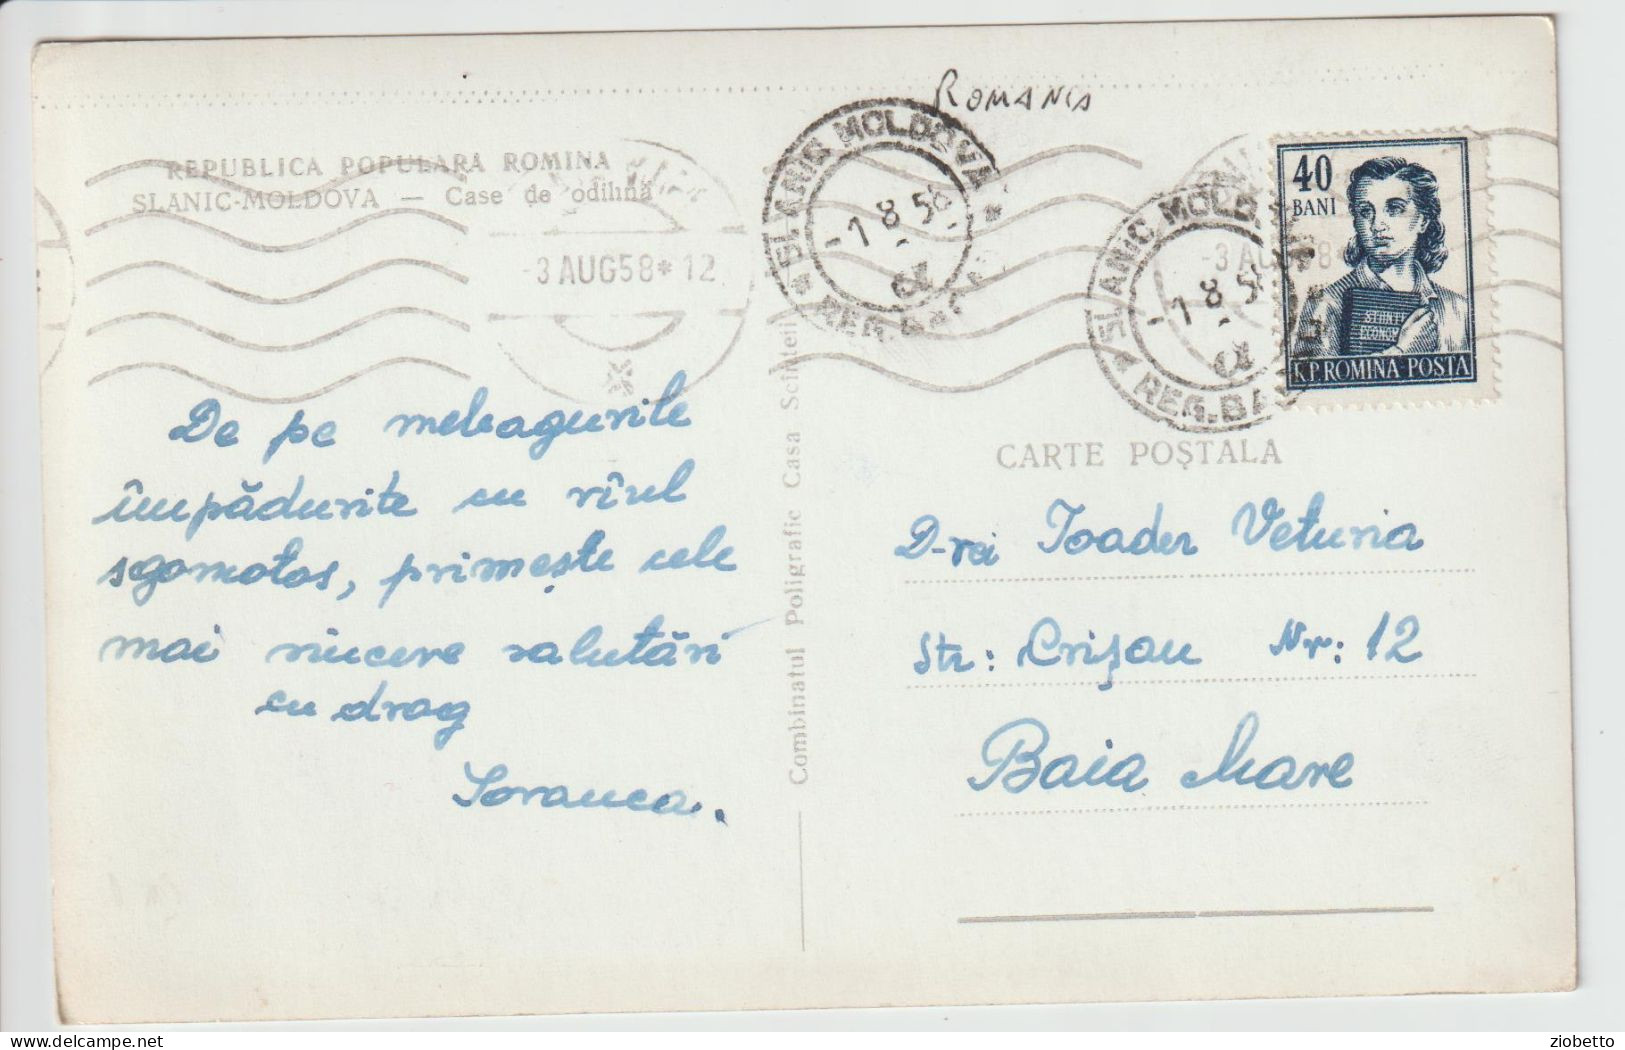 ROMANIA
REPUBLICA POPULARA ROMINA
SLANIC-MOLDOVA — Case de odihnă
-3 AUG58*12
SLANIC MOLDOVA
-1 8 58
REG. BACĂU
SLANIC MOLDOVA
-1 8 58
REG. BACĂU
-3 AUG58
40
BANI
R.P.ROMINA POSTA
De pe meleagurile
împădurite cu rîul
sgomotos, primește cele
mai sincere salutări
cu drag
Soranca.
Combinatul Poligrafic Casa Scînteii
CARTE POȘTALA
D-rei Toader Veturia
Str: Crișan Nr: 12
Baia Mare
delcampe.net
ziobetto